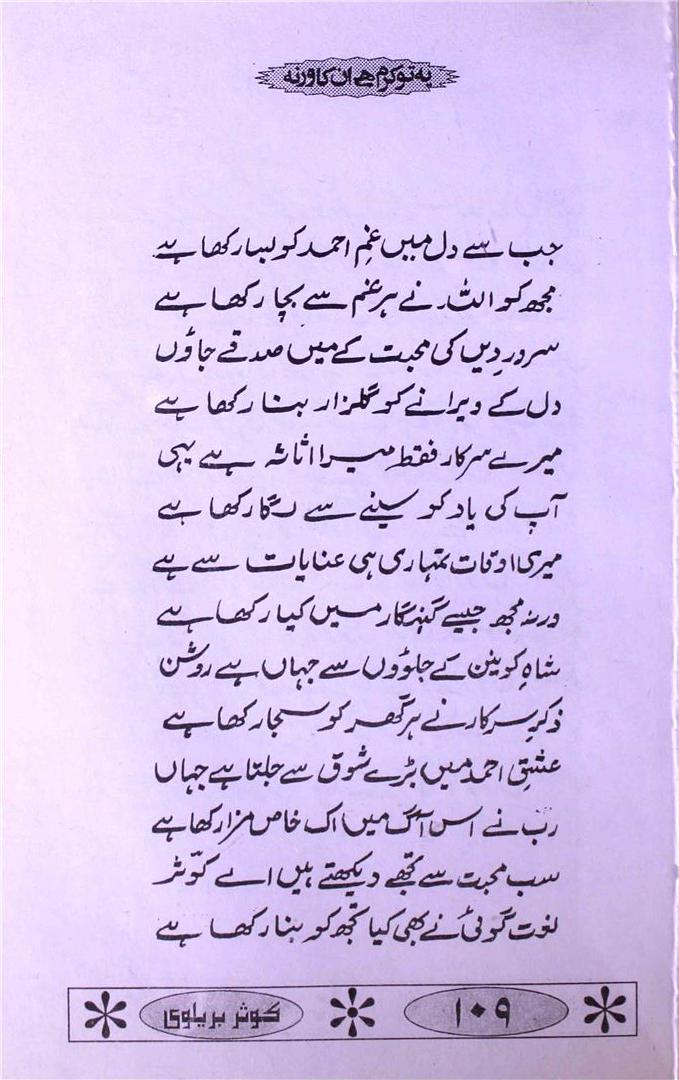 یہ تو کرم ہے ان کا ورنہ
جب سے دل میں غمِ احمد کو بسا رکھا ہے
مجھ کو اللہ نے ہر غم سے بچا رکھا ہے
سرورِ دیں کی محبت کے میں صدقے جاؤں
دل کے ویرانے کو گلزار بنا رکھا ہے
میرے سرکار فقط میرا اثاثہ ہے یہی
آپ کی یاد کو سینے سے لگا رکھا ہے
میری اوقات تمہاری ہی عنایات سے ہے
ورنہ مجھ جیسے گنہگار میں کیا رکھا ہے
شاہِ کونین کے جلوؤں سے جہاں ہے روشن
ذکرِ سرکار نے ہر گھر کو سجا رکھا ہے
عشقِ احمد میں بڑے شوق سے جلتا ہے جہاں
رب نے اس آگ میں اک خاص مزا رکھا ہے
سب محبت سے تجھے دیکھتے ہیں اے کوثر
نعت گوئی نے بھی کیا تجھ کو بنا رکھا ہے
۱۰۹
کوثر بریلوی